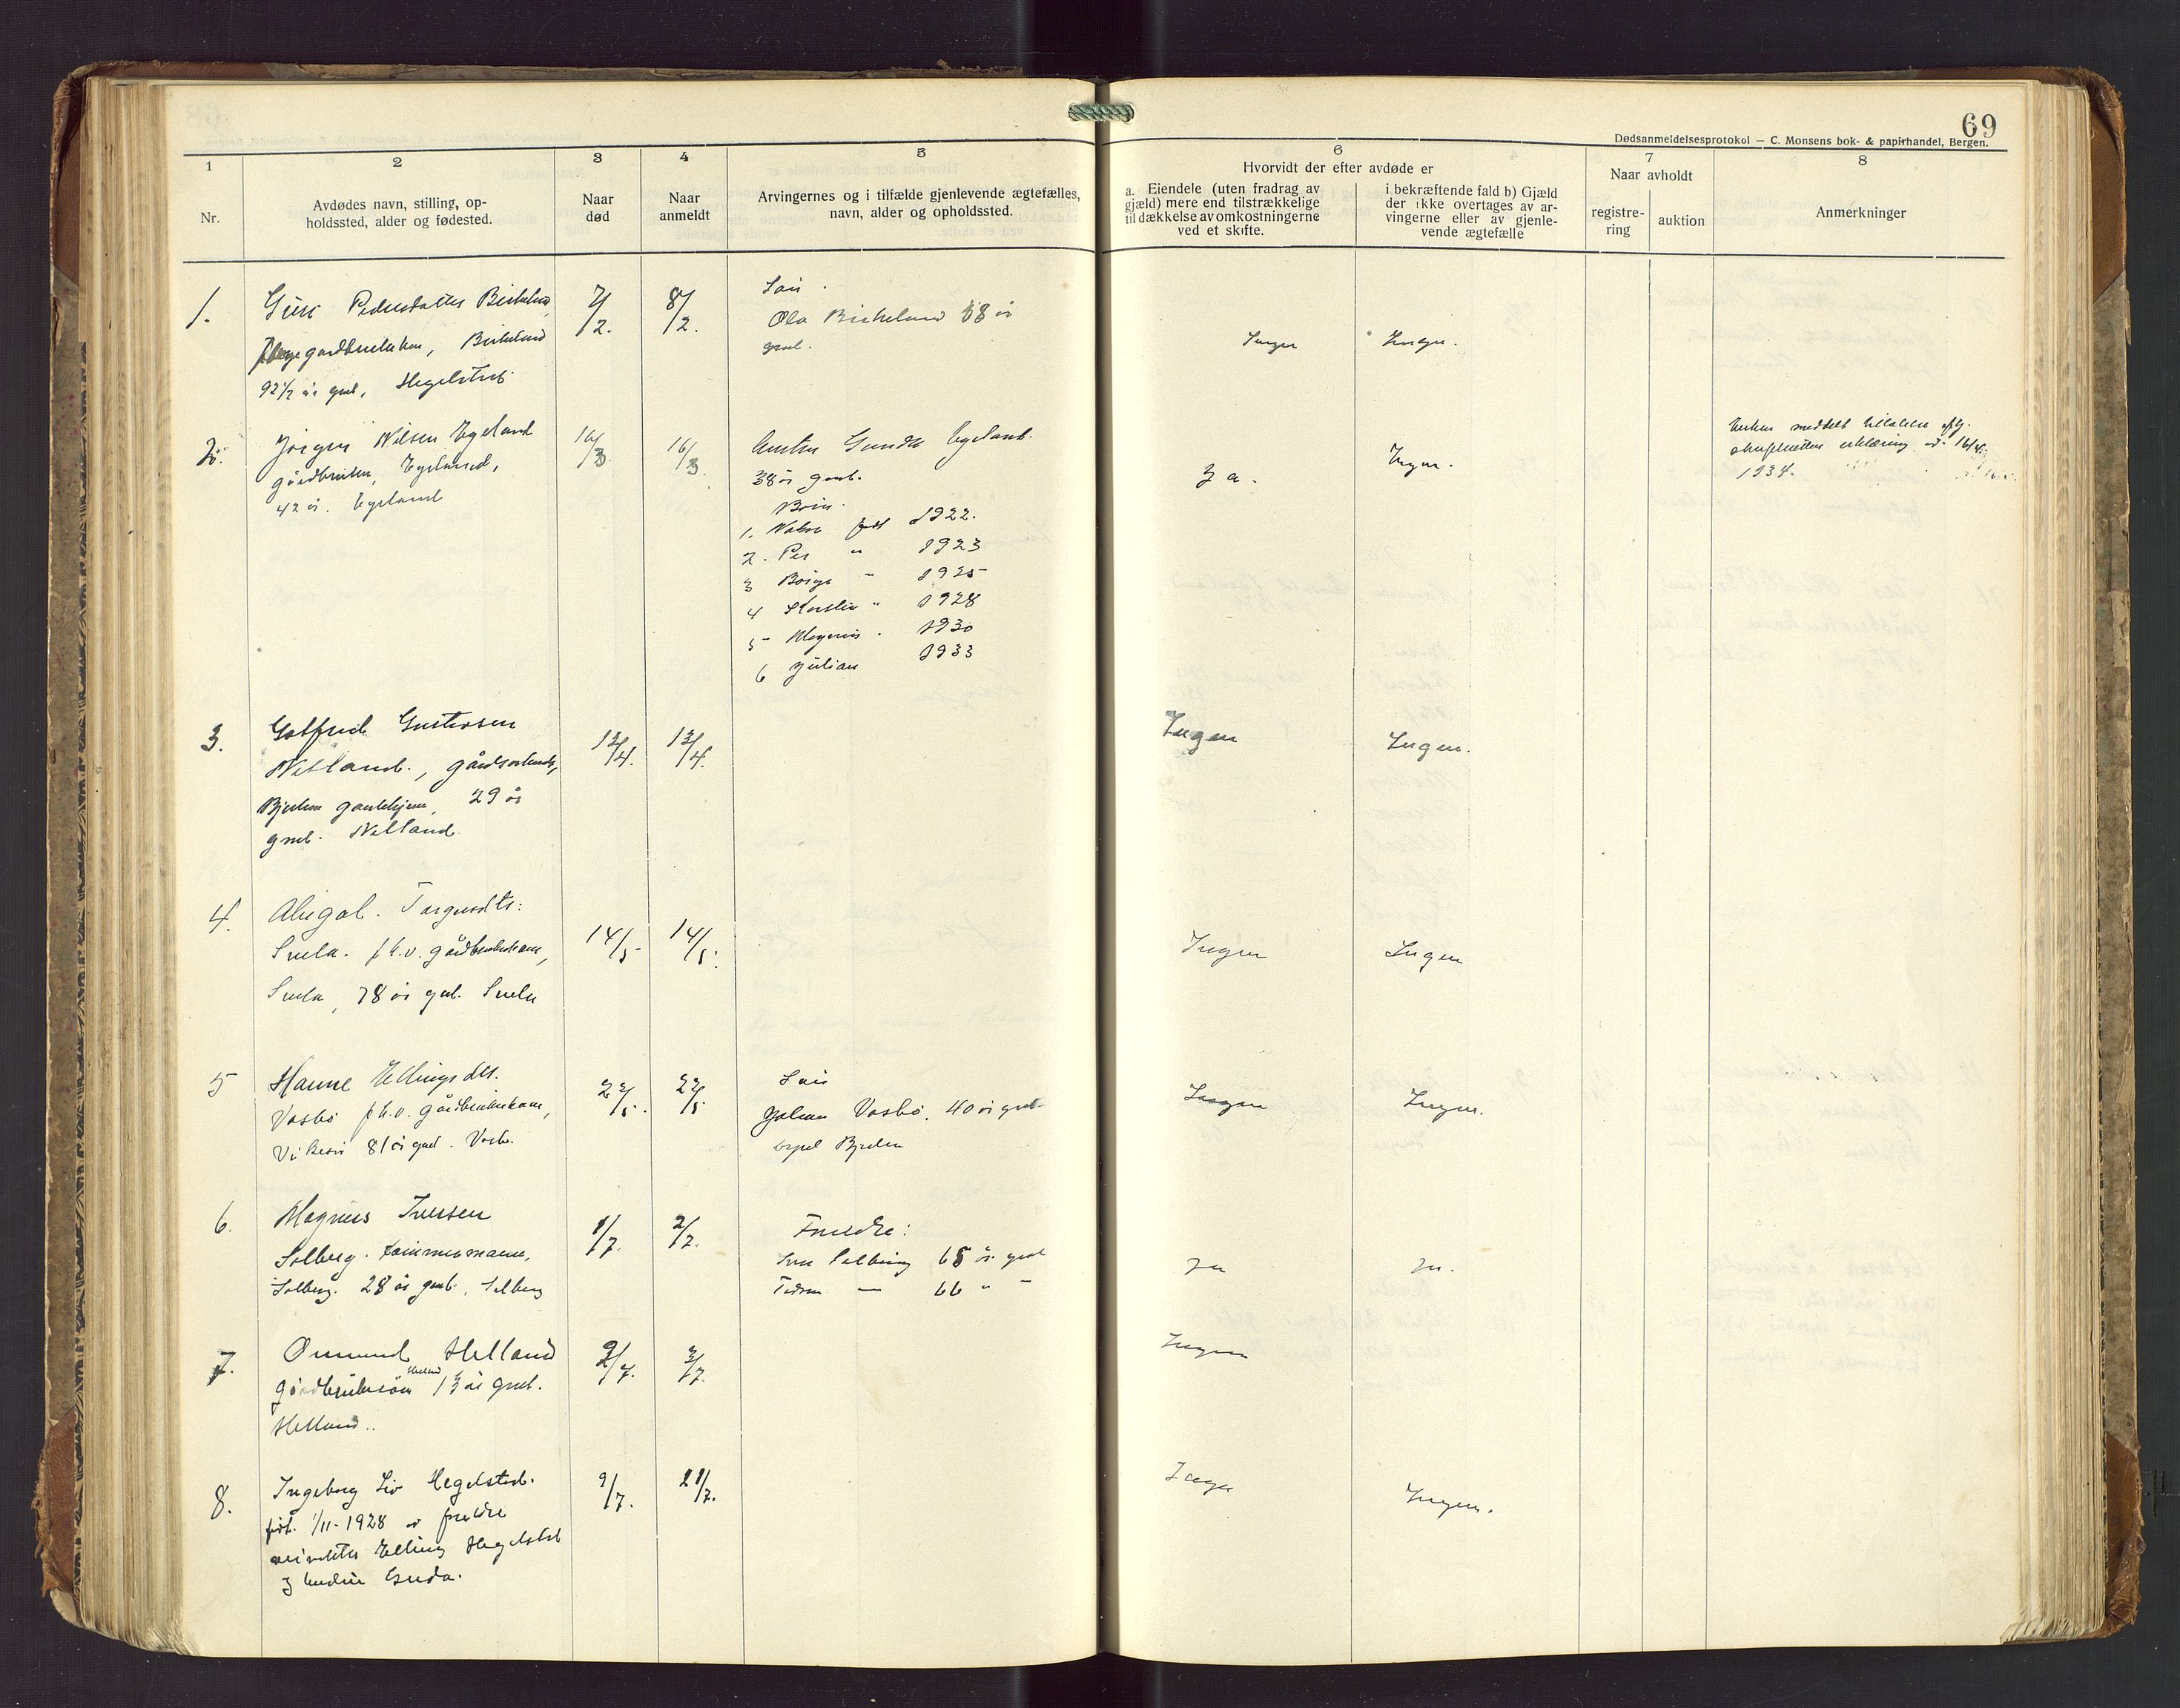 69
Dødsanmeldelsesprotokol — C. Monsens bok- & papirhandel, Bergen.
1
2
3
4
5
6
7
8
Nr.
Avdødes navn, stilling, op-
holdssted, alder og fødested.
Naar
død
Naar
anmeldt
Arvingernes og i tilfælde gjenlevende ægtefælles,
navn, alder og opholdssted.
Hvorvidt der efter avdøde er
a. Eiendele (uten fradrag av
gjæld) mere end tilstrækkelige
til dækkelse av omkostningerne
ved et skifte.
i bekræftende fald b) Gjæld
der ikke overtages av ar-
vingerne eller av gjenle-
vende ægtefælle
Naar avholdt
registre-
ring
auktion
Anmerkninger
1.
Guri Pedersdatter Birkeland
gårdbrukerkone, Birkeland
92½ år gml, Hegelstad
7/2.
8/2.
Søn
Ola Birkeland 58 år
gml.
Ingen
Ingen.
2.
Jørgen Nilsen Egeland
gårdbruker, Egeland,
42 år. Egeland
16/3.
16/3.
Enken Egeland.
38 år gml.
Børn.
1. født 1922.
2. Per " 1923
3 Børge " 1925
4 Kerstin " 1928
5 Magnus " 1930
6 Julian 1933
Ja.
Ingen.
Enken meddelt tillatelse
erklæring
1934.
3.
Gotfred Gustavsen
Netland., gårdsarbeider,
gamlehjem, 29 år
gml. Netland
12/4.
13/4.
Ingen
Ingen.
4.
Abigal. Torgersdtr:
Svela. f.h.v. gårdbrukerkone,
Svela, 78 år gml. Svela
14/5
14/5.
Ingen
Ingen
5
Hanne Ellingsdtr.
Vasbø f.h.v. gårdbrukerkone,
Vikesø 81 år gml. Vasbø.
22/5.
22/5.
Søn
Johan Vasbø, 40 år gml
Ingen
Ingen.
6.
Magnus Iversen
Solberg. tømmermann,
Solberg. 28 år gml., Solberg
1/7.
2/7.
Foreldre:
Iver Solberg 65 år gml
— 66 " "
Ja
Ja.
7.
Omund Helland
gårdbrukersøn Helland 13 år gml.
Helland..
2/7.
3/7.
Ingen
8.
Ingeborg Liv Hegelstad.
født. 1/11-1928 av foreldre
Elling Hegelstad
og hustru Guda.
9/7.
21/7.
Ingen
Ingen.